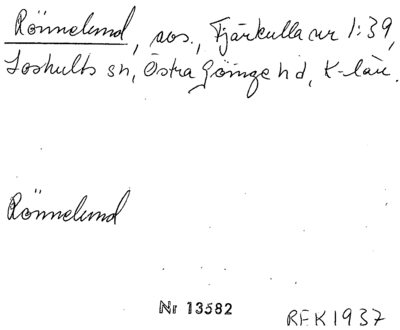 Rönnelund, sos., Fjärkulla nr 1:39,
Loshults sn, Östra Göinge hd, K-län.
Rönnelund
Nr 13582
REK 1937